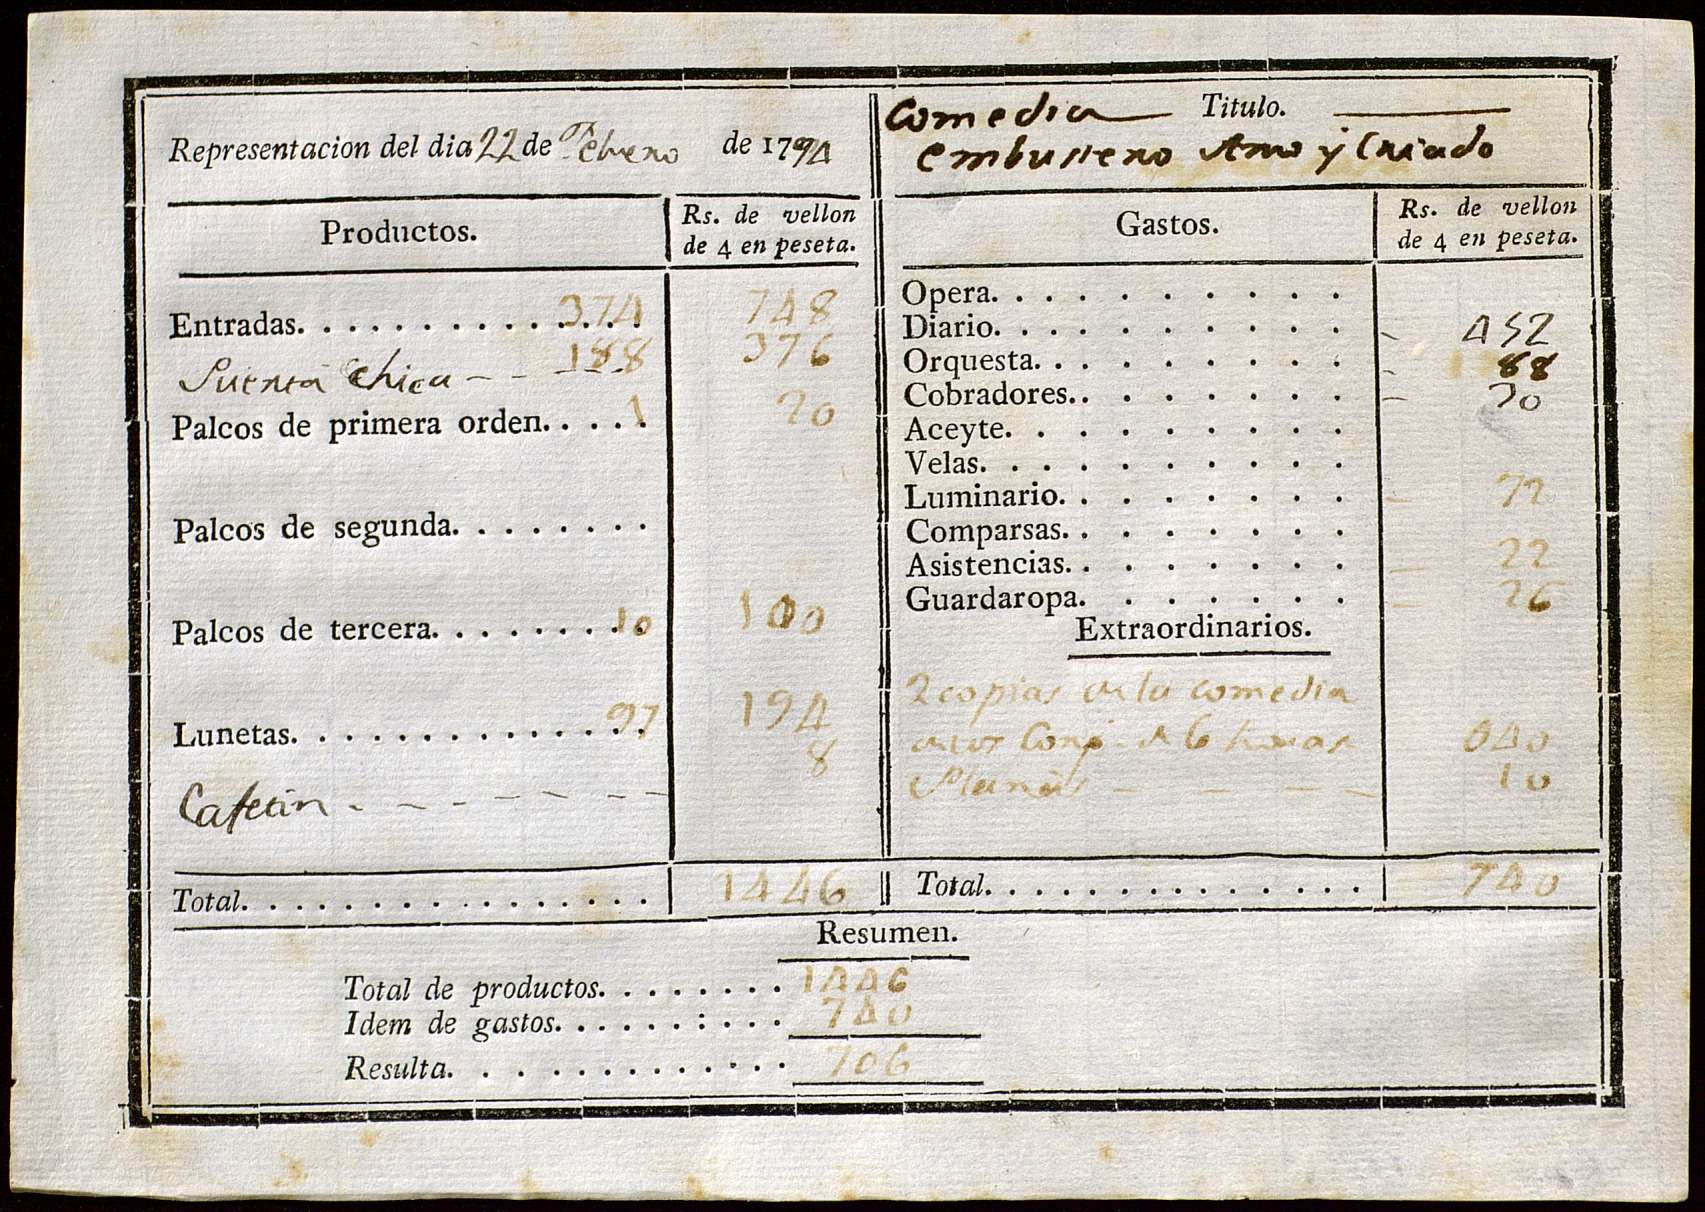 Representacion del dia 22 de Febrero de 1794
Productos.
Rs. de vellon
de 4 en peseta.
Entradas. 374 748
Puerta chica 188 376
Palcos de primera orden. 1 20
Palcos de segunda.
Palcos de tercera. 10 100
Lunetas. 97 194
Cafetin 8
Total. 1446
Comedia Titulo.
embustero Amo y Criado
Gastos.
Rs. de vellon
de 4 en peseta.
Opera.
Diario. 452
Orquesta. 88
Cobradores. 30
Aceyte.
Velas.
Luminario. 72
Comparsas.
Asistencias. 22
Guardaropa. 26
Extraordinarios.
2 copias de la comedia
de 6 040
10
Total. 740
Resumen.
Total de productos. 1446
Idem de gastos. 740
Resulta. 706